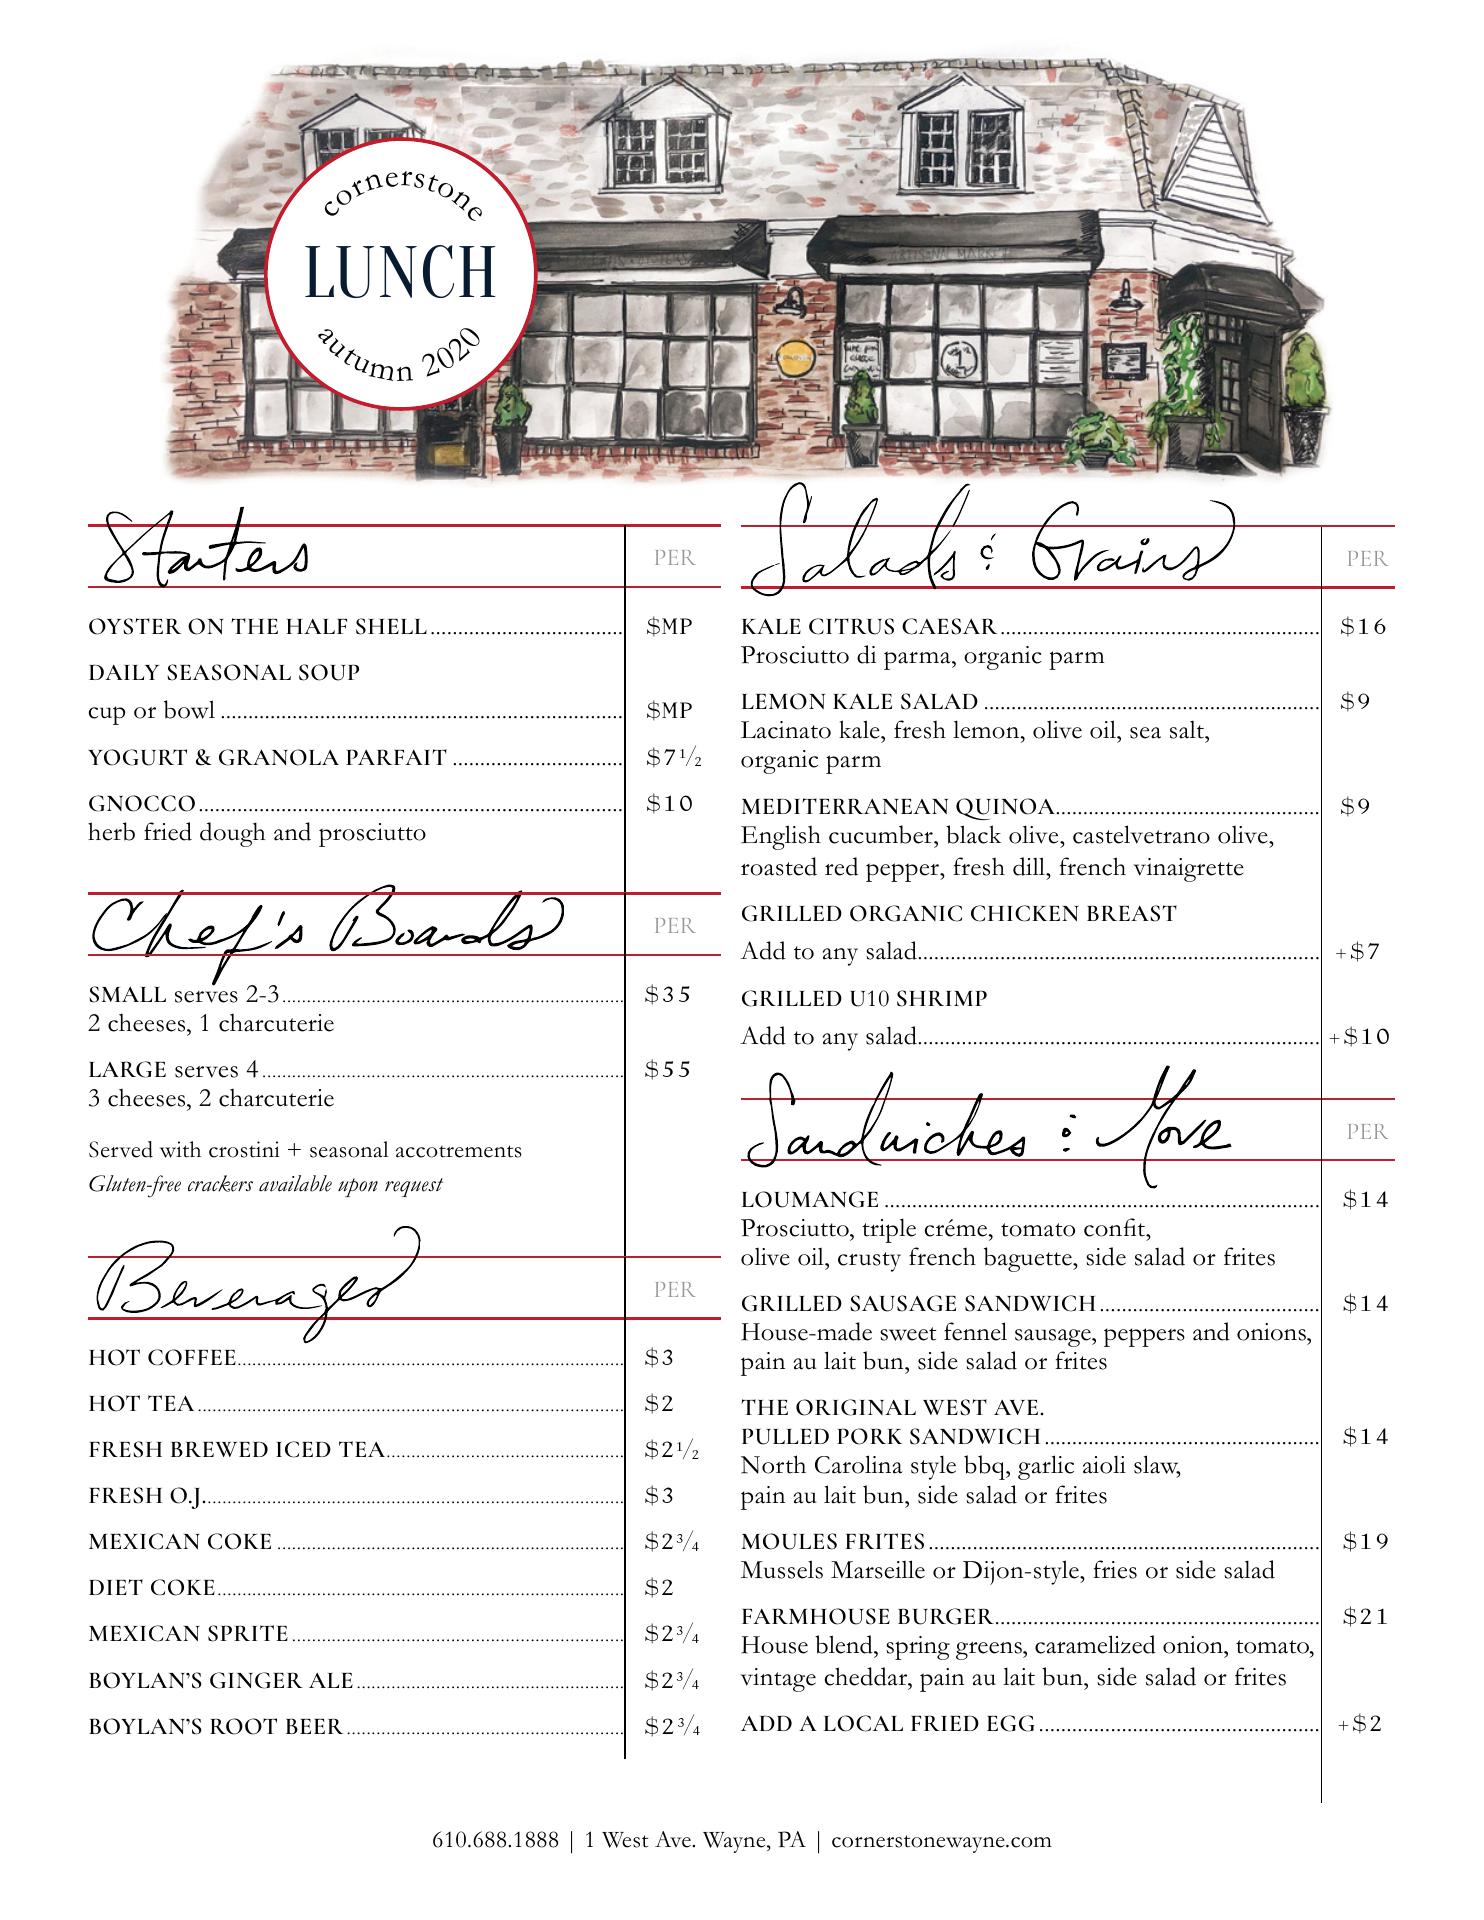 cornerstone
LUNCH
autumn 2020
ARTISANAL MARKET
Starters
PER
OYSTER ON THE HALF SHELL.......... $MP
DAILY SEASONAL SOUP
cup or bowl .......... $MP
YOGURT & GRANOLA PARFAIT .......... $7 1/2
GNOCCO.......... $10
herb fried dough and prosciutto
Chef's Boards
PER
SMALL serves 2-3.......... $35
2 cheeses, 1 charcuterie
LARGE serves 4.......... $55
3 cheeses, 2 charcuterie
Served with crostini + seasonal accotrements
Gluten-free crackers available upon request
Beverages
PER
HOT COFFEE.......... $3
HOT TEA.......... $2
FRESH BREWED ICED TEA.......... $2 1/2
FRESH O.J........... $3
MEXICAN COKE .......... $2 3/4
DIET COKE.......... $2
MEXICAN SPRITE.......... $2 3/4
BOYLAN'S GINGER ALE.......... $2 3/4
BOYLAN'S ROOT BEER.......... $2 3/4
Salads & Grains
PER
KALE CITRUS CAESAR.......... $16
Prosciutto di parma, organic parm
LEMON KALE SALAD .......... $9
Lacinato kale, fresh lemon, olive oil, sea salt,
organic parm
MEDITERRANEAN QUINOA.......... $9
English cucumber, black olive, castelvetrano olive,
roasted red pepper, fresh dill, french vinaigrette
GRILLED ORGANIC CHICKEN BREAST
Add to any salad.......... +$7
GRILLED U10 SHRIMP
Add to any salad.......... +$10
Sandwiches & More
PER
LOUMANGE .......... $14
Prosciutto, triple créme, tomato confit,
olive oil, crusty french baguette, side salad or frites
GRILLED SAUSAGE SANDWICH.......... $14
House-made sweet fennel sausage, peppers and onions,
pain au lait bun, side salad or frites
THE ORIGINAL WEST AVE.
PULLED PORK SANDWICH.......... $14
North Carolina style bbq, garlic aioli slaw,
pain au lait bun, side salad or frites
MOULES FRITES.......... $19
Mussels Marseille or Dijon-style, fries or side salad
FARMHOUSE BURGER.......... $21
House blend, spring greens, caramelized onion, tomato,
vintage cheddar, pain au lait bun, side salad or frites
ADD A LOCAL FRIED EGG.......... +$2
610.688.1888 | 1 West Ave. Wayne, PA | cornerstonewayne.com